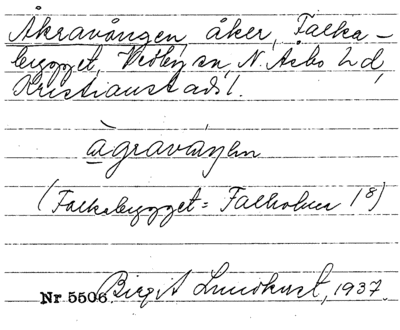 Åkravången, åker, Falka-
bygget, Vedby sn, N. Åsbo hd,
Kristianstads l.
ågraváŋen
(Falkabygget = Falholma 1⁸)
Nr 5506 Birgit Lundkvist, 1937.